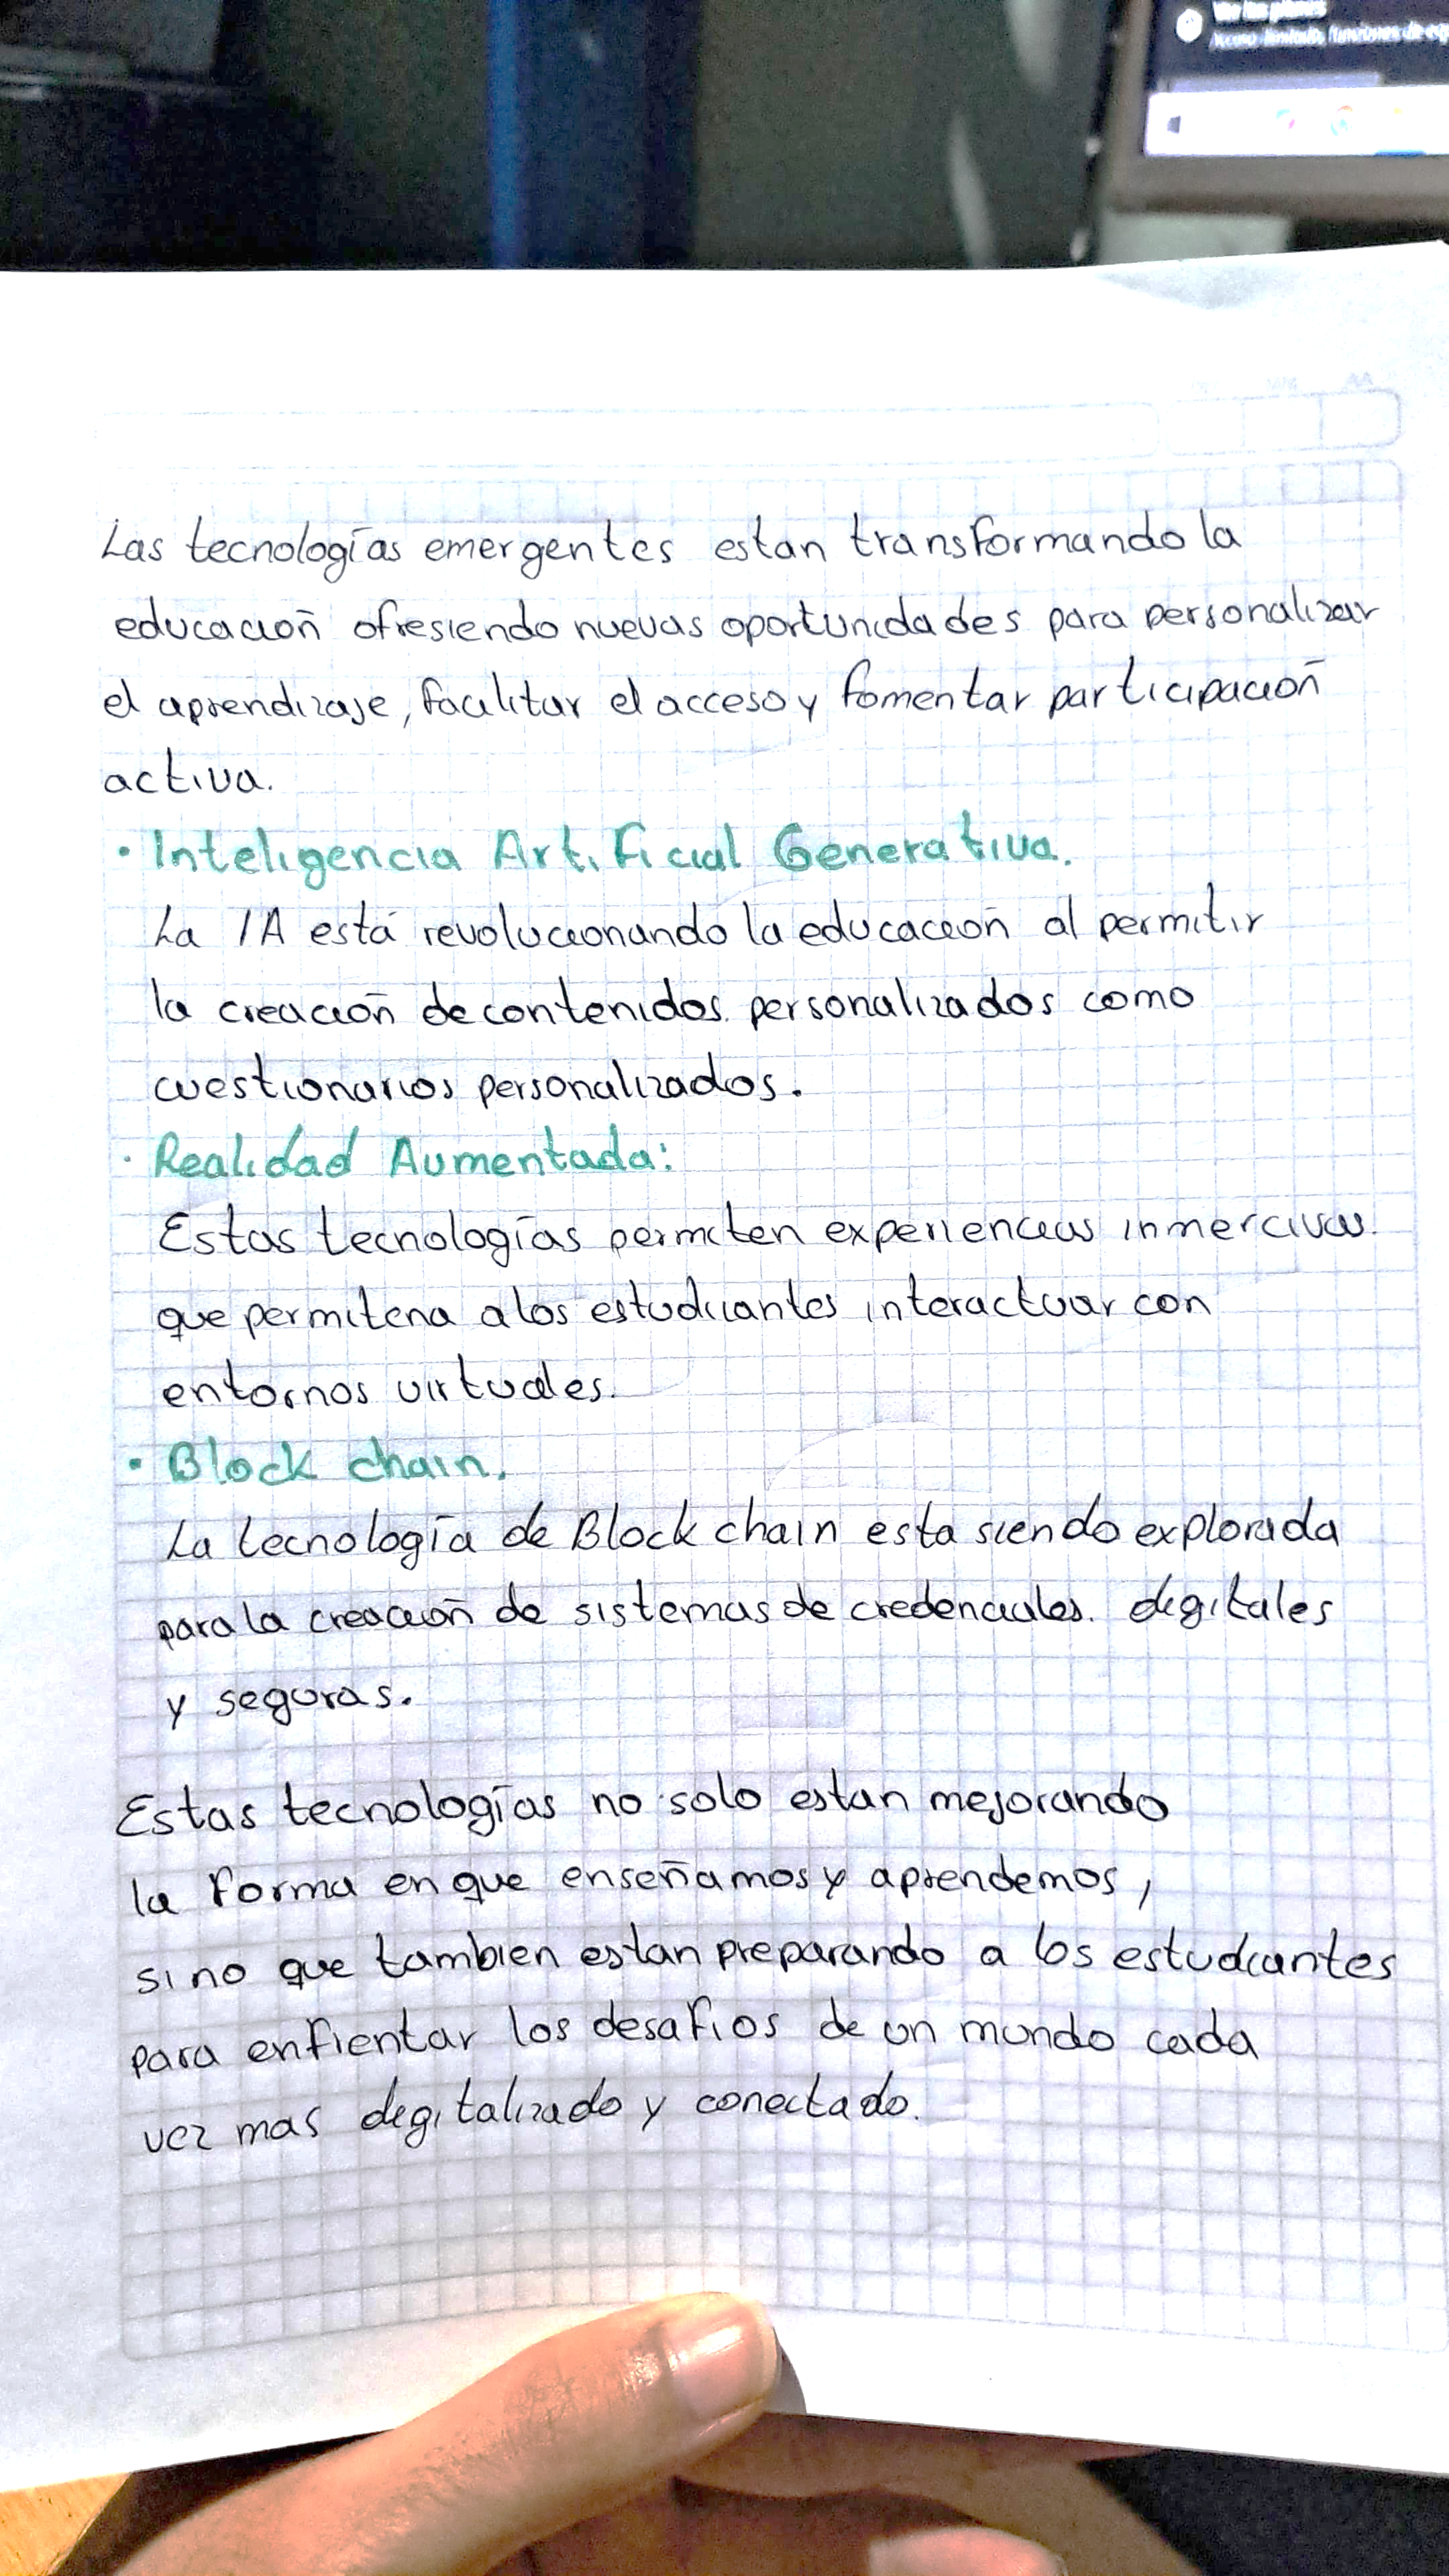 Ver los planes
Acceso limitado, funciones de
Las tecnologías emergentes estan transformando la
educación ofresiendo nuevas oportunidades para personalizar
el aprendizaje, facilitar el acceso y fomentar participación
activa.
• Inteligencia Artificial Generativa.
La IA está revolucionando la educación al permitir
la creación de contenidos personalizados como
cuestionarios personalizados.
· Realidad Aumentada:
Estas tecnologías permiten experiencias inmercivas
que permitena a los estudiantes interactuar con
entornos virtuales.
• Block chain.
La tecnología de Block chain esta siendo explorada
para la creación de sistemas de credenciales. digitales
y seguras.
Estas tecnologías no solo estan mejorando
la forma en que enseñamos y aprendemos,
si no que tambien estan preparando a los estudiantes
para enfrentar los desafios de un mundo cada
vez mas digitalizado y conectado.